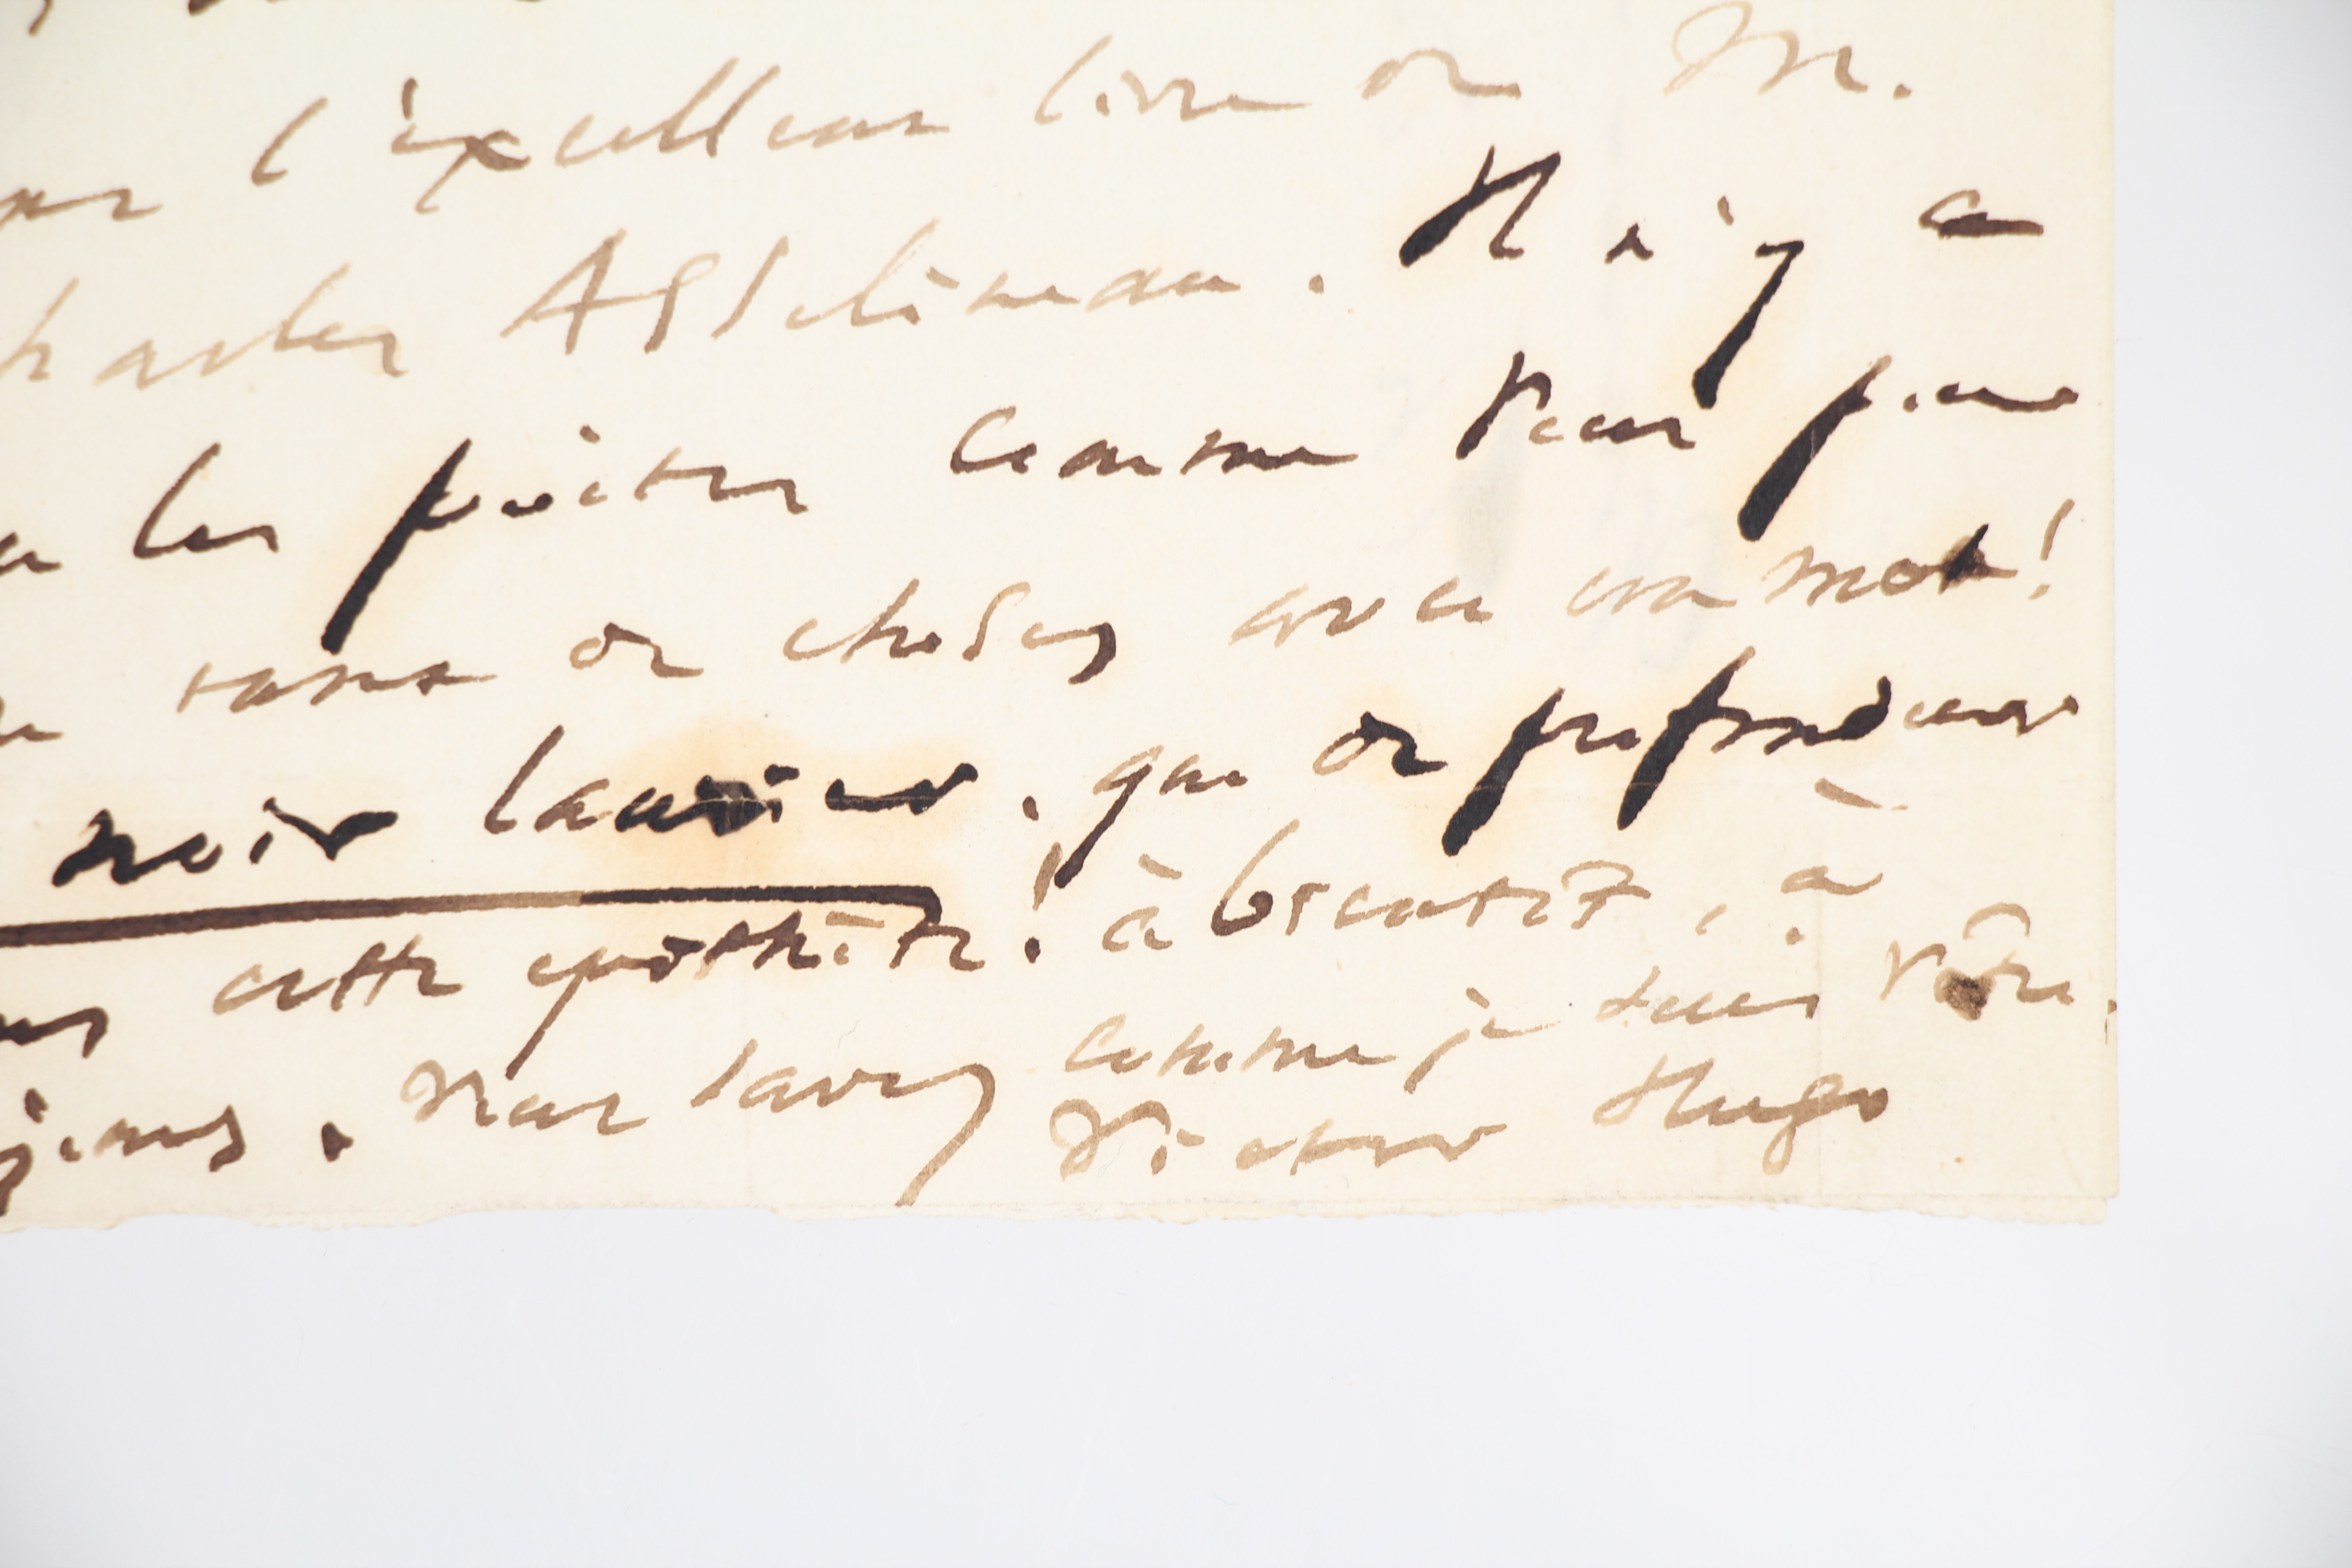 l'excellent livre de M.
harles Asselineau. Il n'y a
les poëtes comme vous pour
tant de choses avec un mot!
noir laurier, que de profondeurs
cette épithète! à bientôt, à
. Vous savez comme je suis vôtre.
Victor Hugo